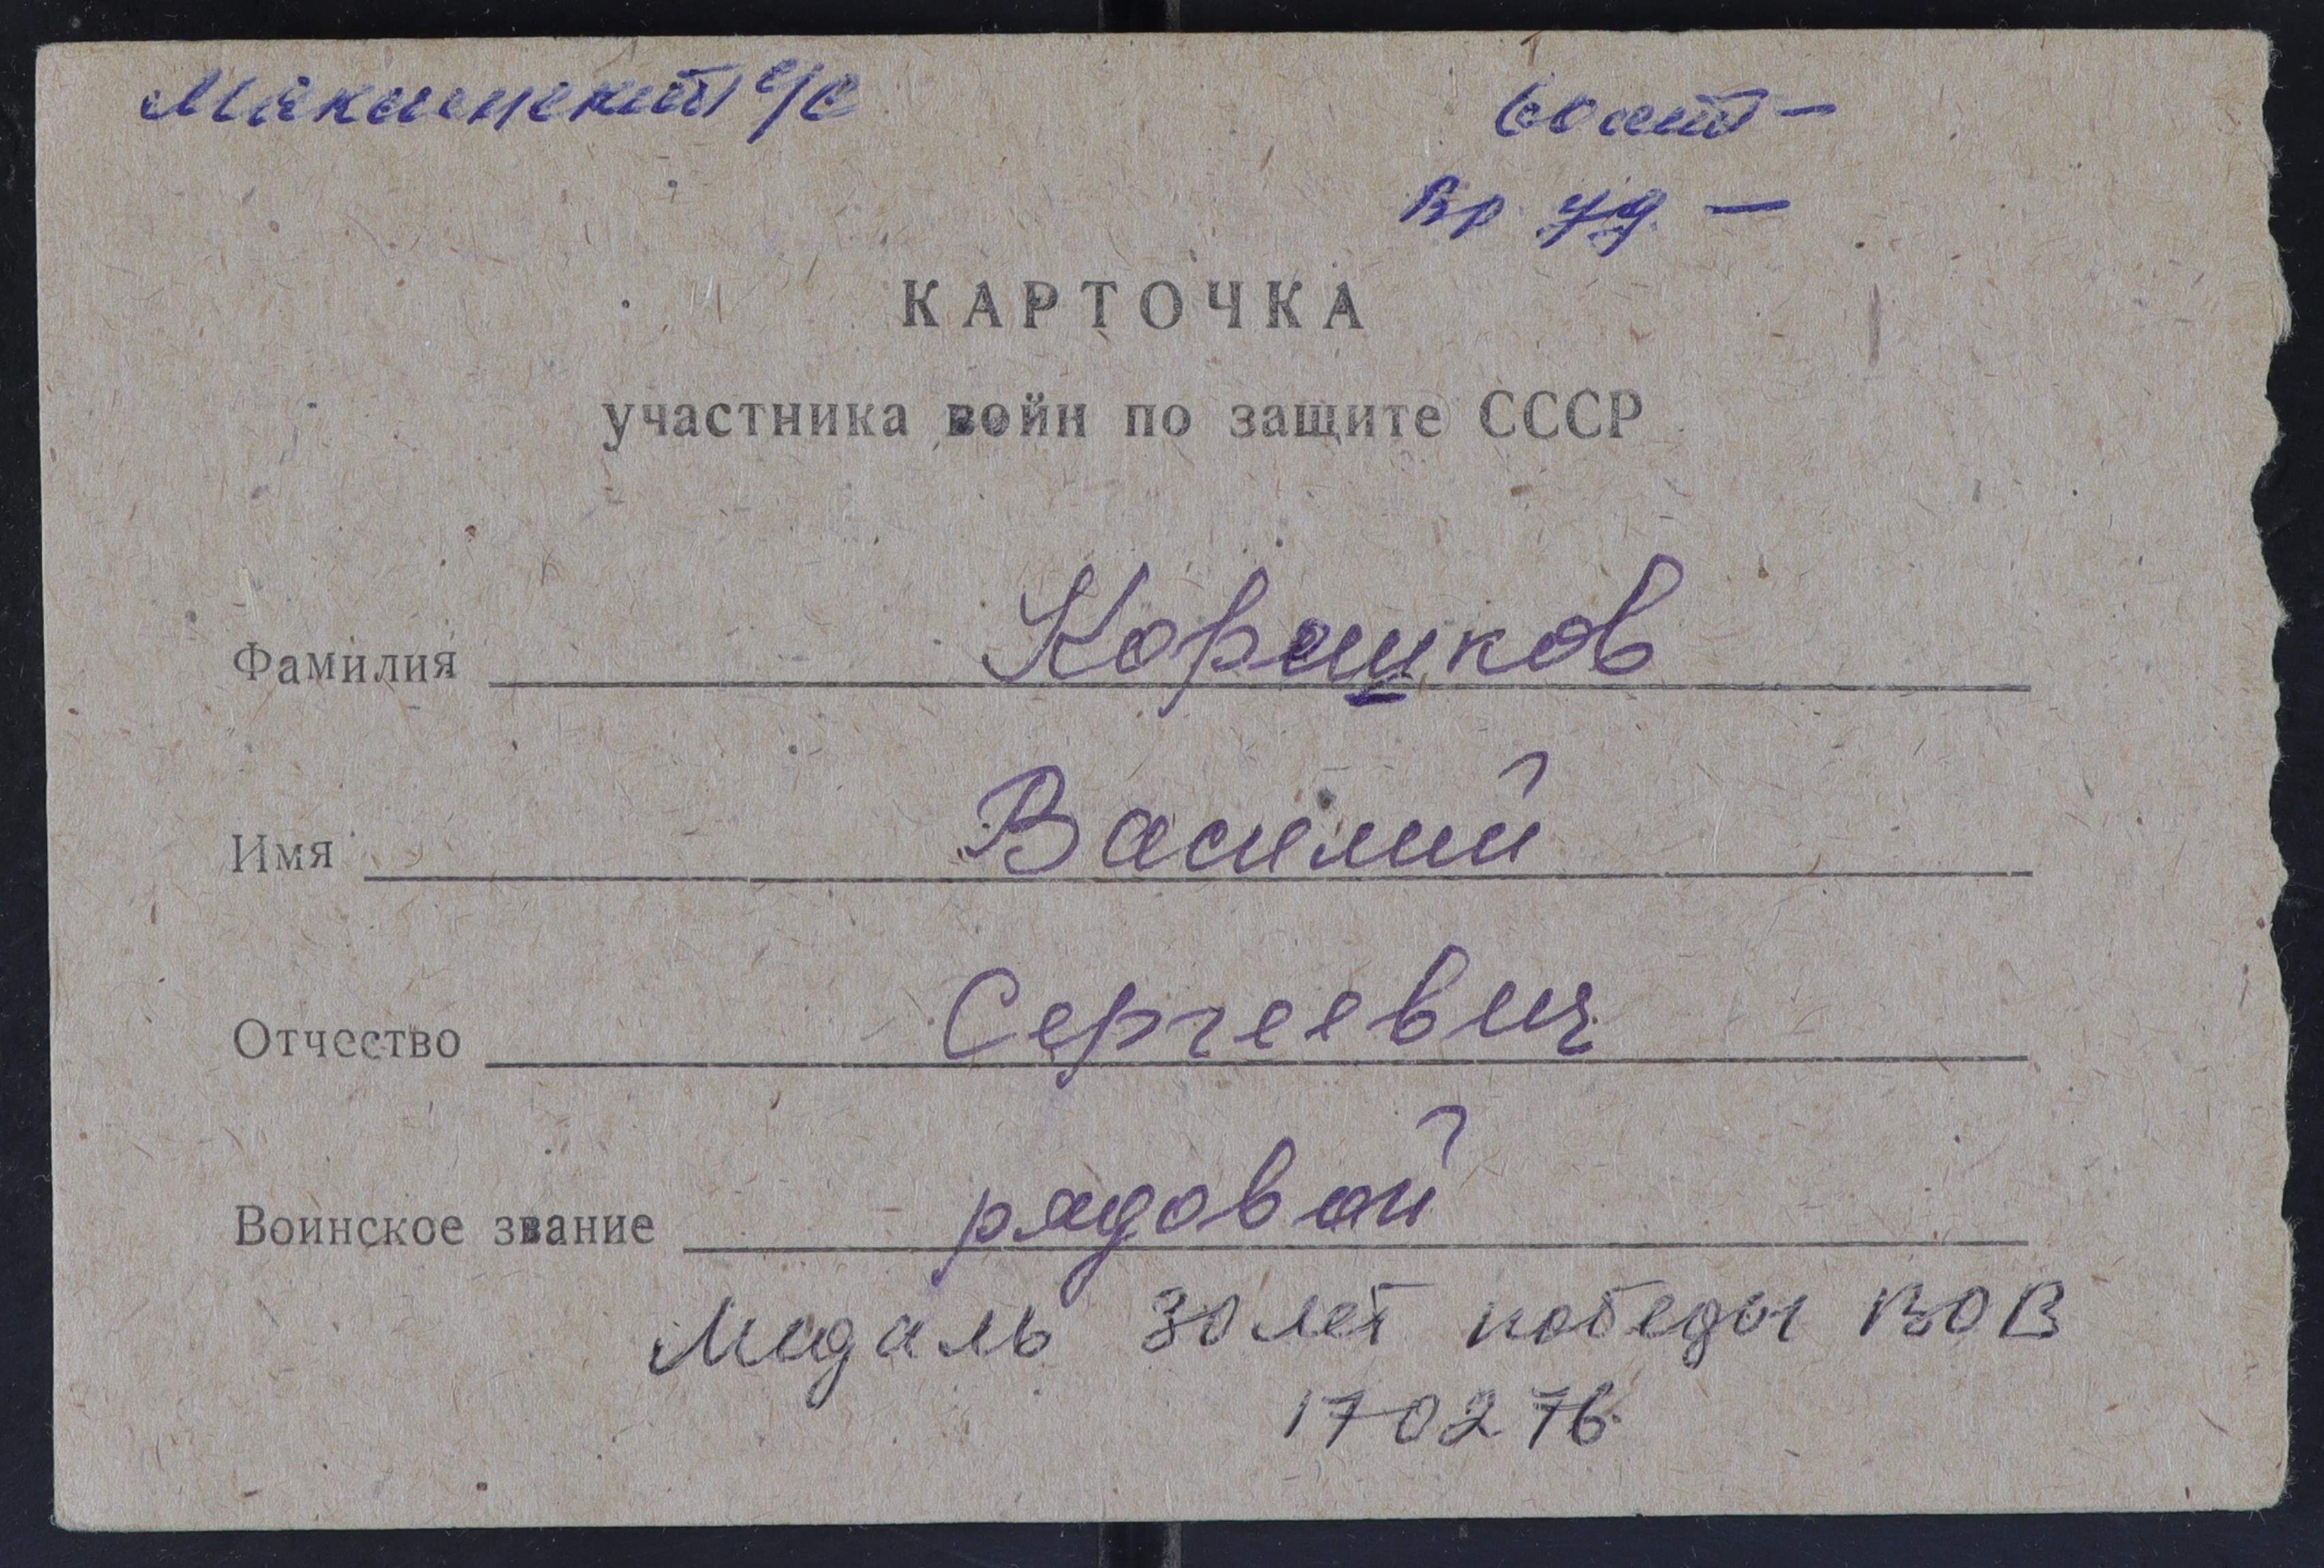 с/с
60 лет —
Вр. уд. —
КАРТОЧКА
участника войн по защите СССР
Фамилия Коршуков
Имя Василий
Отчество Сергеевич
Воинское звание рядовой
Медаль 30 лет победы ВОВ
17 02 76.